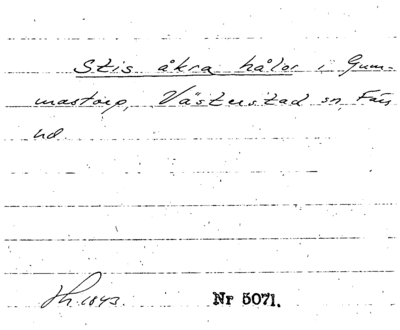 Stis åkra hålor i Gum-
mastorp, Västerstad sn, Färs
hd.
Lh. 1843. Nr 5071.